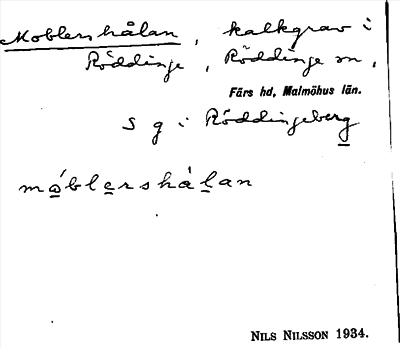 Moblershålan, kalkgrav i
Röddinge, Röddinge sn,
Färs hd, Malmöhus län.
s g i Röddingeberg
mó̲ble̲rshål̲an
NILS NILSSON 1934.